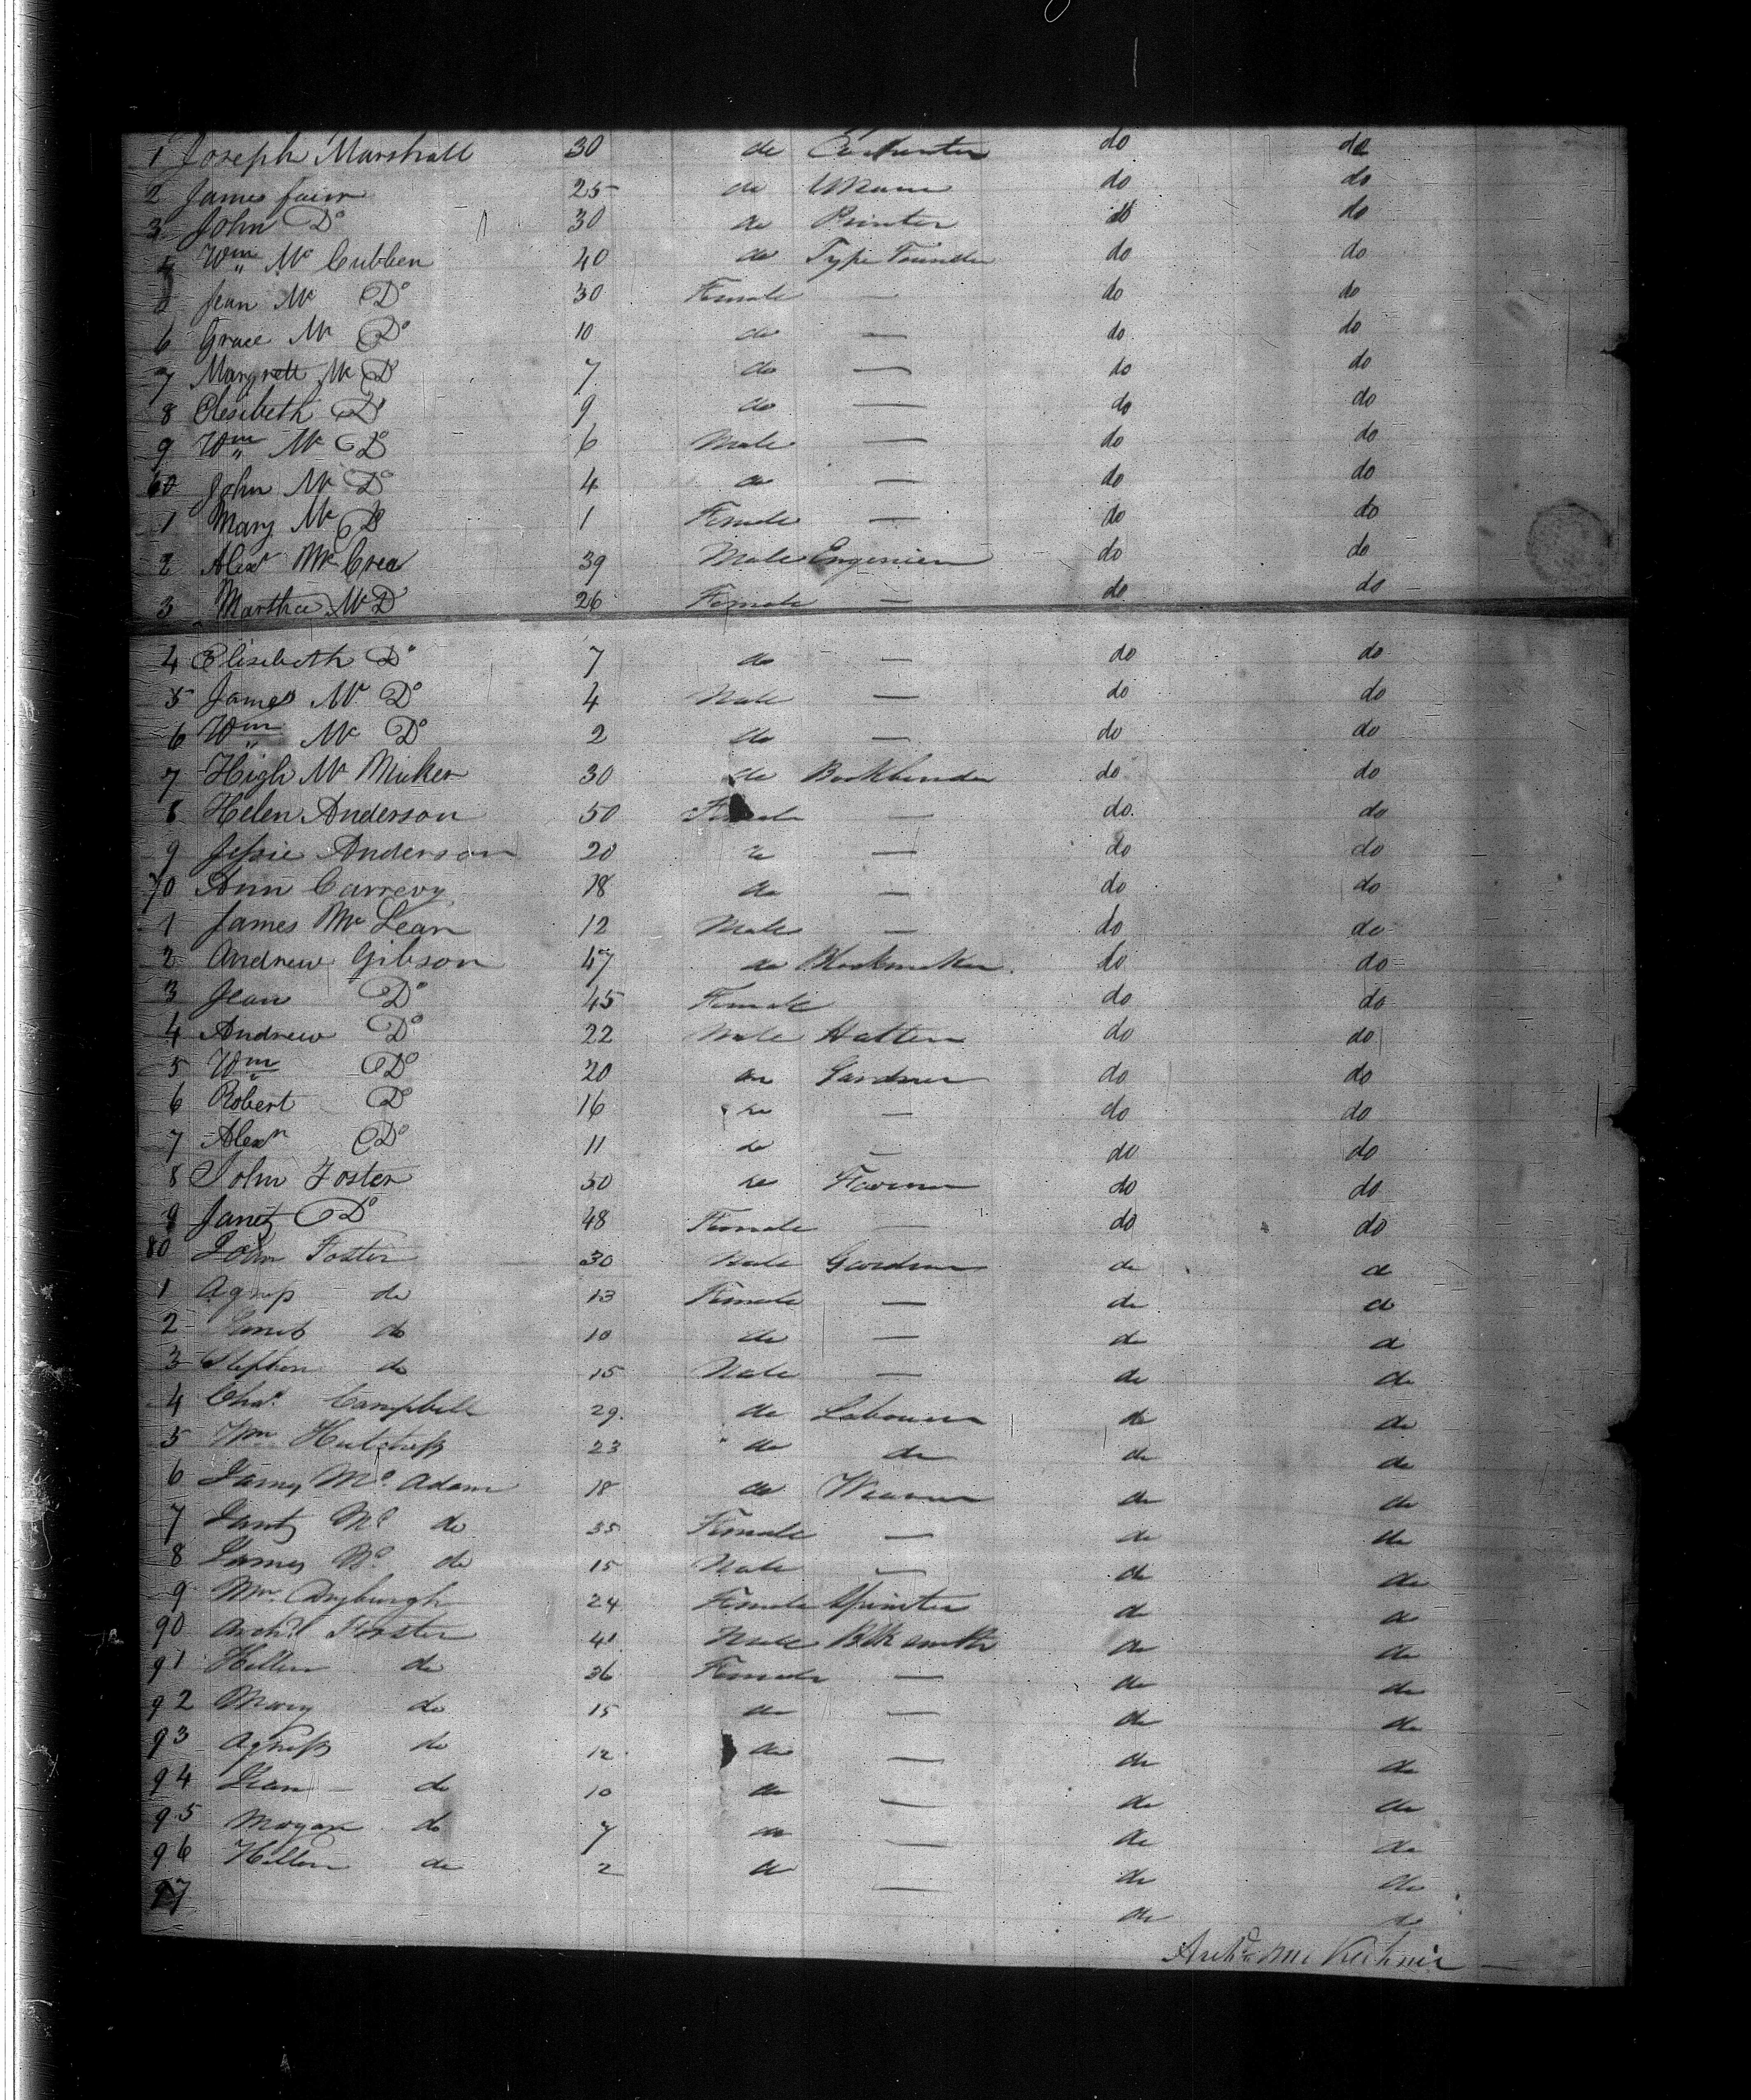 1 Joseph Marshall 30 do Carpenter do do
2 James fair 25 do do do
3 John Do 30 do Printer do do
4 Wm Mc Cubben 40 do Type Founder do do
5 Jean Mc Do 30 Female — do do
6 Grace Mc Do 10 do — do do
7 Margrett Mc Do 7 do — do do
8 Elesibeth Do 9 do — do do
9 Wm Mc Do 6 Male — do do
60 John Mc Do 4 do — do do
1 Mary Mc Do 1 Female — do do
2 Alexr Mc Crea 39 Male Engenier do do
3 Martha Mc Do 26 Female — do do
4 Elisibeth Do 7 do — do do
5 James Mc Do 4 Male — do do
6 Wm Mc Do 2 do — do do
7 High Mc Micken 30 do Bookbinder do do
8 Helen Anderson 50 Female — do do
9 Jessie Anderson 20 do — do do
70 Ann Carrevy 18 do — do do
1 James Mc Lean 12 Male — do do
2 Andrew Gibson 47 do Blockmaker do do
3 Jean Do 45 Female do do
4 Andrew Do 22 Male Hatter do do
5 Wm Do 20 do Gardner do do
6 Robert Do 16 do — do do
7 Alexr Do 11 do — do do
8 John Foster 50 do Farmer do do
9 Janet Do 48 Female — do do
80 John Foster 30 Male Gardner do do
1 Agness do 13 Female — do do
2 Janet do 10 do — do do
3 Stephen do 15 Male — do do
4 Chas. Campbell 29 do Labourer do do
5 Wm 23 do do do do
6 James Mc Adam 18 do Weaver do do
7 Janet Mc do 35 Female — do do
8 James Mc do 15 Male — do do
9 Mrs. Dryburgh 24 Female Spinster do do
90 Archd Forster 41 Male Blksmith do do
91 Hellen do 36 Female — do do
92 Mary do 15 do — do do
93 Agness do 12 do — do do
94 Jean do 10 do — do do
95 do 7 do — do do
96 Hellen do 2 do — do do
97 do do